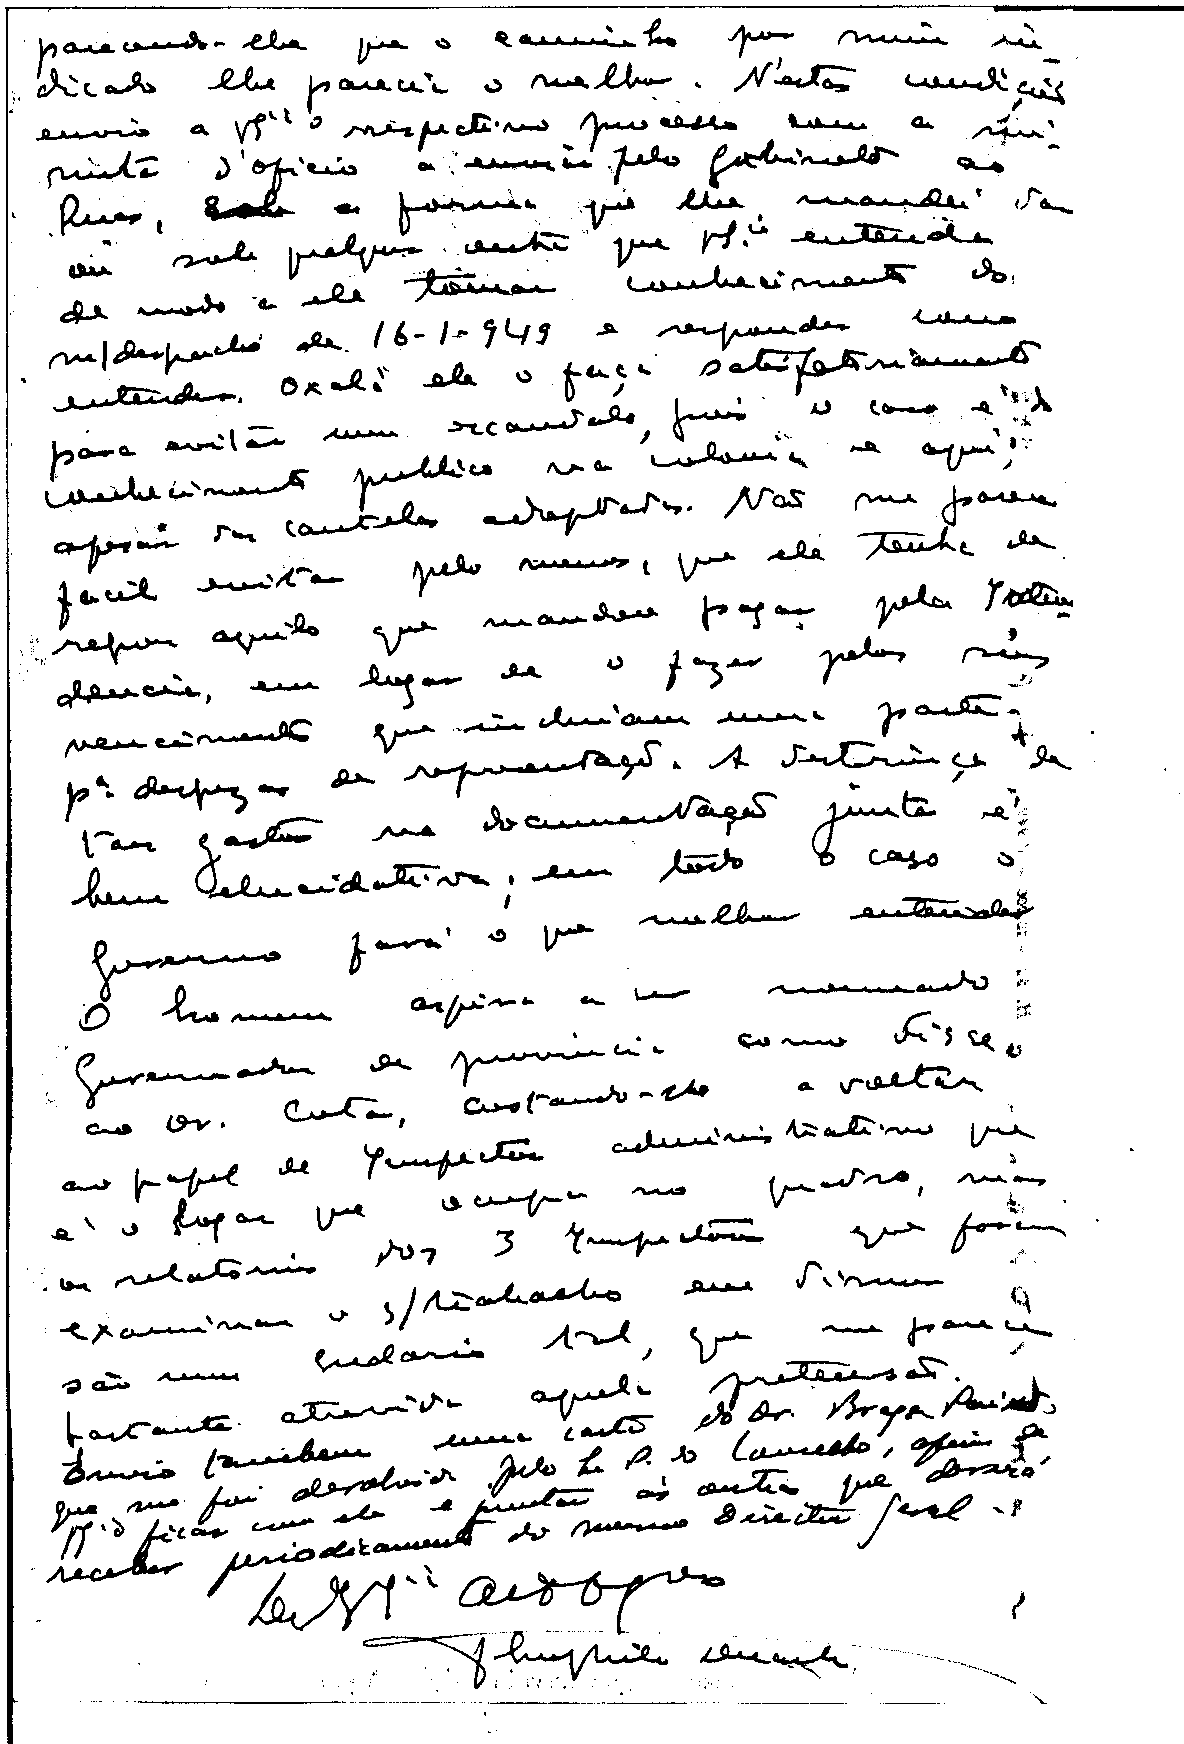 parecendo-lhe que o caminho por mim in-
dicado lhe parecia o melhor. Nestas condições
envio a V. Exª o respectivo processo com a mi-
nuta d'oficio a enviar pelo Gabinete ao
Ruas, sob a forma que lhe mandei dar
ou sob qualquer outra que V. Exª entenda
de modo a ele tomar conhecimento do
m/despacho de 16-1-949 e responder como
entender. Oxalá ele o faça satisfatoriamente
para evitar um escandalo, pois o caso é do
conhecimento publico na colonia e aqui,
apesar das cautelas adoptadas. Não me parece
facil evitar pelo menos, que ele tenha de
repor aquilo que mandou pagar pela Inten-
dencia, em logar de o fazer pelos seus
vencimentos que incluiam uma parte
pª despezas de representação. A destrinça de
tais gastos na documentação junta é
bem elucidativa; em todo o caso o
Governo fará o que melhor entender
O homem aspira a ser nomeado
Governador de provincia como disse
ao Dr. Cota, custando-lhe a voltar
ao papel de Inspector administrativo que
é o logar que ocupa no quadro, mas
os relatorios dos 3 Inspectores que foram
examinar o s/trabalho em Timor
são um tal, que me parece
bastante atrevida aquela pretensão.
Envio tambem uma carta do Dr. Braga Paixão
que me foi devolvida pelo Sr P. do Conselho, afim de
V. Exª ficar com ela e juntar ás outras que deverá
receber periodicamente do mesmo Director Geral
De V. Exª
Theophilo Duarte